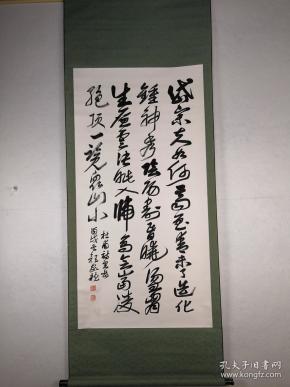 岱宗夫如何齊魯青未了造化
鍾神秀陰陽割昏曉盪胸
生層雲決眥入歸鳥會當凌
絕頂一覽眾山小
杜甫詩望岳
孔夫子旧书网